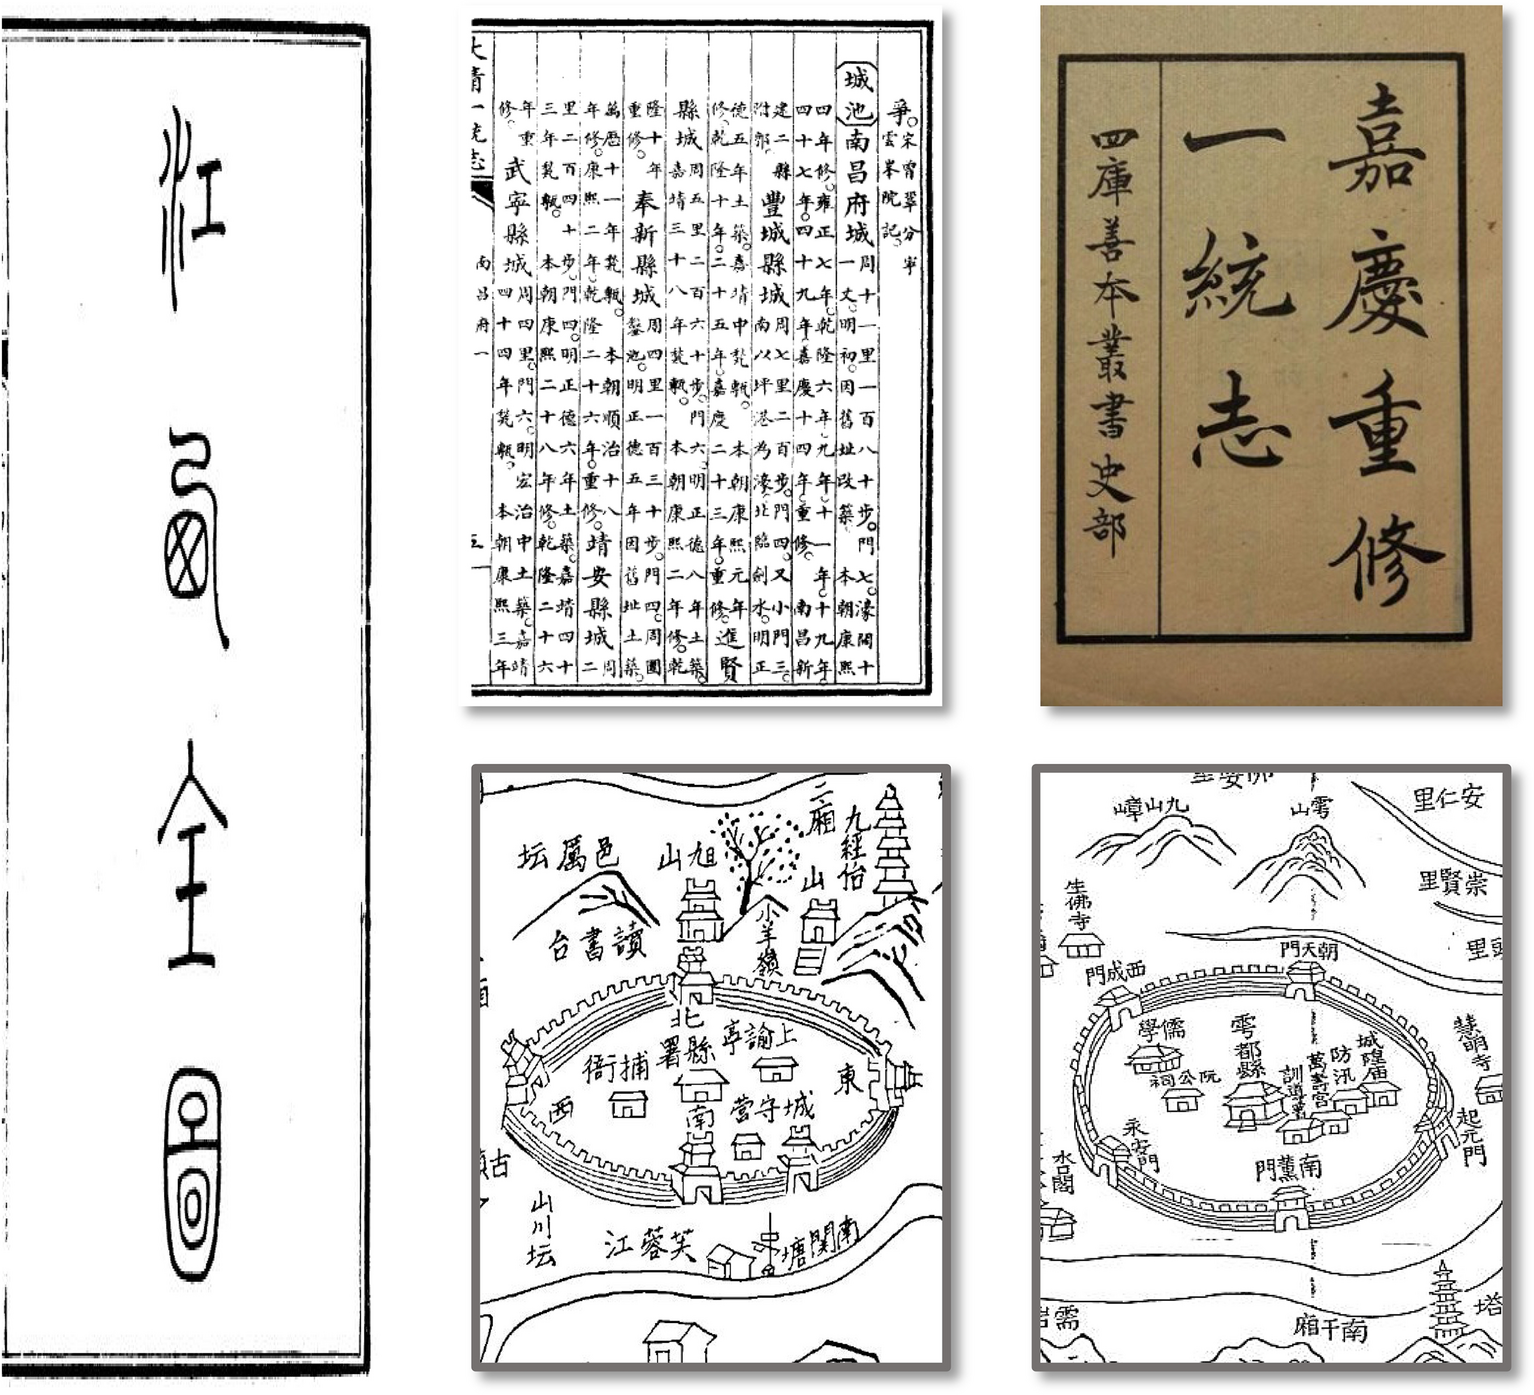 江西全圖
爭。宋曾鞏分寧
雲峯院記。
城池 南昌府城 周十一里一百八十步。門七。濠闊十
一丈。明初。因舊址改築。本朝康熙
四年修。雍正七年。乾隆六年。九年。十一年。十九年。
四十七年。四十九年。嘉慶十四年。重修。南昌新
建二縣
附郭。
豐城縣城 周七里二百步。門四。又小門三。
南以坪港為濠。北臨劍水。明正
德五年土築。嘉靖中甃甎。本朝康熙元年
修。乾隆十年。二十五年。嘉慶二十三年。重修。
進賢
縣城 周五里二百六十步。門六。明正德八年土築。
嘉靖三十八年甃甎。本朝康熙二年修。乾
隆十年
重修。
奉新縣城 周四里一百三十步。門四。周圍
鑿池。明正德五年因舊址土築。
萬歷十一年甃甎。本朝順治十八
年修。康熙二年。乾隆二十六年。重修。
靖安縣城 周
二
里二百四十步。門四。明正德六年土築。嘉靖四十
三年甃甎。本朝康熙二十八年修。乾隆二十六
年重
修。
武寧縣城 周四里。門六。明宏治中土築。嘉靖
四十四年甃甎。本朝康熙三年
大清一統志
南昌府一
五
嘉慶重修
一統志
四庫善本叢書史部
二廂
九經台
山
旭山
邑厲坛
小羊嶺
讀書台
北
上諭亭
縣署
捕衙
東
西
城守營
南
山川坛
芙蓉江
南關塘
九山嶂
雩山
安仁里
崇賢里
生佛寺
朝天門
西成門
儒學
雩都縣
阮公祠
訓導署
萬壽宮
防汛
城隍庙
慧明寺
起元門
永安門
水口閣
南薰門
南干廂
塔